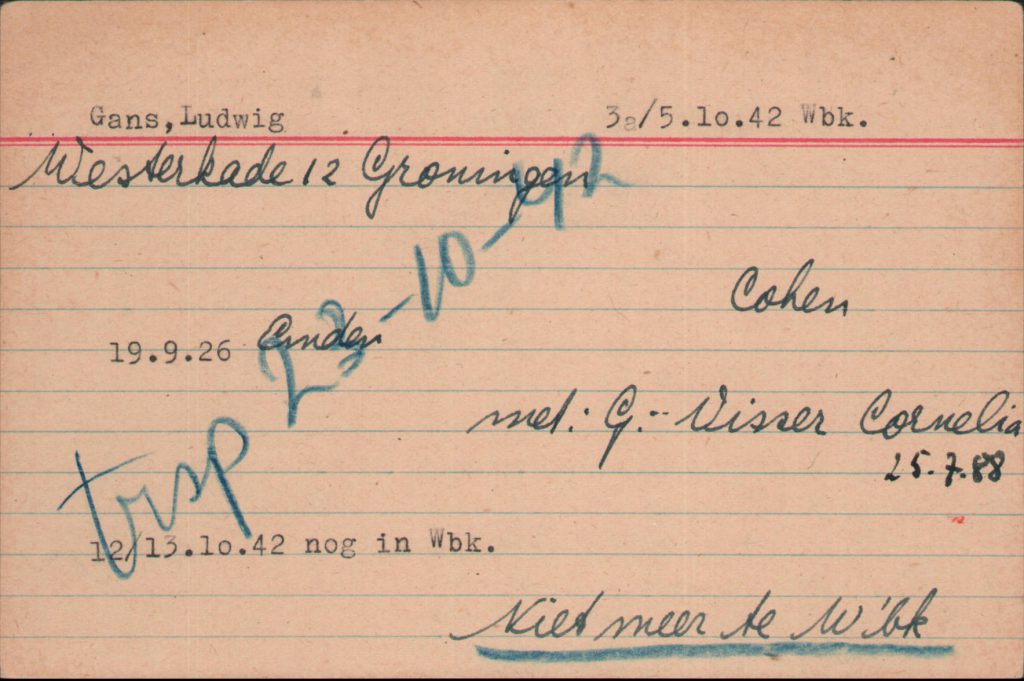 Gans,Ludwig 3a/5.10.42 Wbk.
Westerkade 12 Groningen
trsp 23-10-42
Cohen
19.9.26 Emden
met: G.-Visser Cornelia
25.7.88
12/13.10.42 nog in Wbk.
Niet meer te W'bk